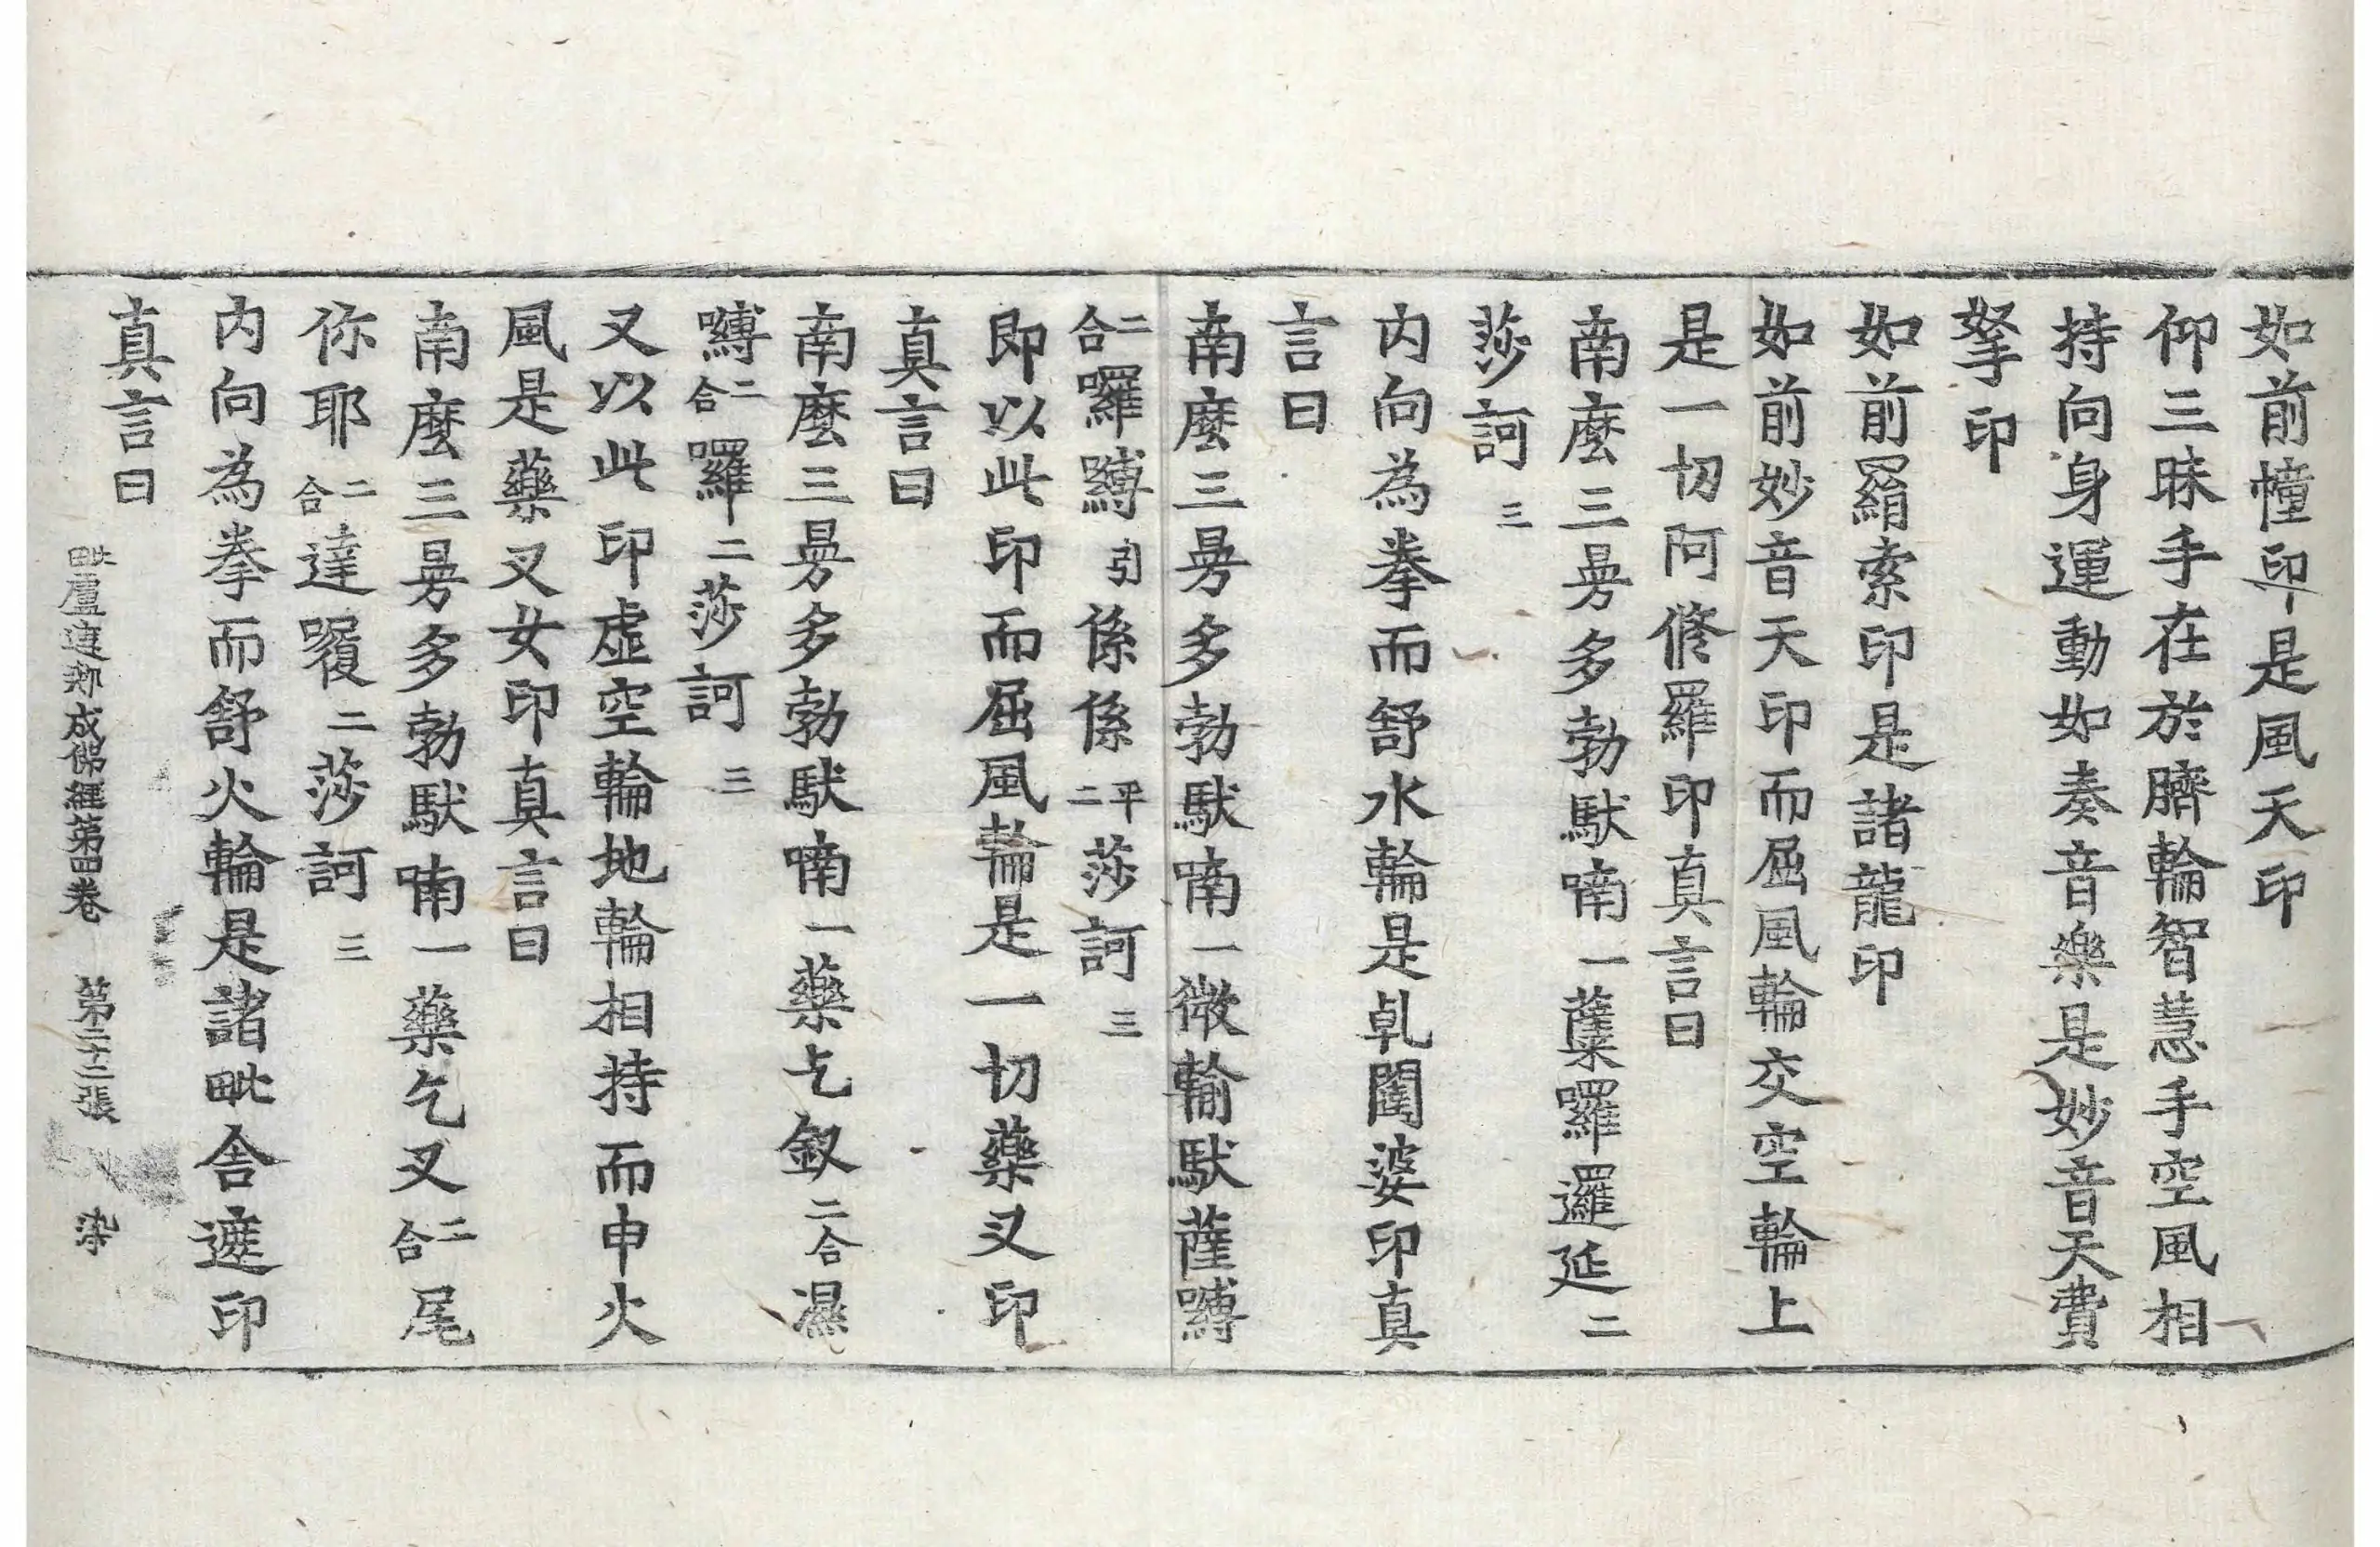 如前幢印是風天印
仰三昧手在於臍輪智慧手空風相
持向身運動如奏音樂是妙音天費
拏印
如前羂索印是諸龍印
如前妙音天印而屈風輪交空輪上
是一切阿修羅印真言曰
南麼三曼多勃馱喃一蘗囉邏延二
莎訶三
內向為拳而舒水輪是乹闥婆印真
言曰
南麼三曼多勃馱喃一微輸馱薩嚩
二合囉嚩引係係平二莎訶三
即以此印而屈風輪是一切藥叉印
真言曰
南麼三曼多勃馱喃一藥乞釵二合濕
嚩二合囉二莎訶三
又以此印虛空輪地輪相持而申火
風是藥叉女印真言曰
南麼三曼多勃馱喃一藥乞叉二合尾
你耶二合達囉二莎訶三
內向為拳而舒火輪是諸毗舍遮印
真言曰
毗盧遮那成佛經第四卷 第二十二張 染